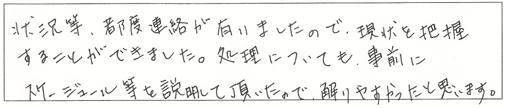 状況等、都度連絡が有いましたので、現状を把握
することができました。処理についても、事前に
スケージュール等を説明して頂いたので、解りやすかったと思います。